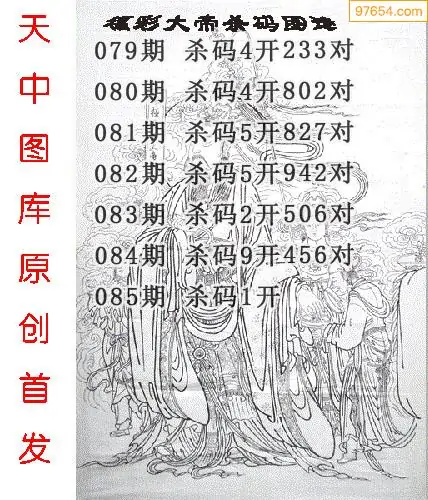 97654.com
福彩大帝杀码图迷
079期 杀码4开233对
080期 杀码4开802对
081期 杀码5开827对
082期 杀码5开942对
083期 杀码2开506对
084期 杀码9开456对
085期 杀码1开
天中图库原创首发